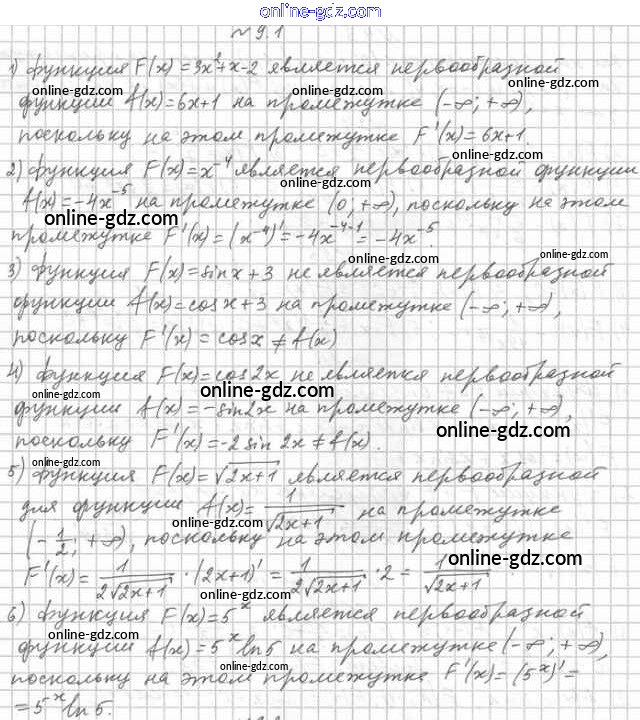 online-gdz.com
№ 9.1
1) функция F(x) = 3x²+x-2 является первообразной
online-gdz.com online-gdz.com
функции f(x)=6x+1 на промежутке (-∞; +∞),
поскольку на этом промежутке F'(x)=6x+1.
online-gdz.com online-gdz.com
2) функция F(x)=x⁻⁴ является первообразной функции
f(x) = -4x⁻⁵ на промежутке (0; +∞), поскольку на этом
online-gdz.com online-gdz.com
промежутке F'(x) = (x⁻⁴)' = -4x⁻⁴⁻¹ = -4x⁻⁵.
online-gdz.com
3) функция F(x)=sin x + 3 не является первообразной
online-gdz.com
функции f(x)=cos x + 3 на промежутке (-∞; +∞),
online-gdz.com
поскольку F'(x) = cos x ≠ f(x)
4) функция F(x)=cos 2x не является первообразной
online-gdz.com online-gdz.com
функции f(x) = -sin 2x на промежутке (-∞; +∞),
online-gdz.com
поскольку F'(x) = -2 sin 2x ≠ f(x).
online-gdz.com online-gdz.com
5) функция F(x) = √(2x+1) является первообразной
для функции f(x) = 1/√(2x+1) на промежутке
online-gdz.com
(-1/2; +∞), поскольку на этом промежутке
online-gdz.com
F'(x) = 1/(2√(2x+1)) · (2x+1)' = 1/(2√(2x+1)) · 2 = 1/√(2x+1)
online-gdz.com
6) функция F(x)=5ˣ является первообразной
online-gdz.com online-gdz.com
функции f(x) = 5ˣ ln 5 на промежутке (-∞; +∞),
online-gdz.com
поскольку на этом промежутке F'(x) = (5ˣ)' =
= 5ˣ ln 5.